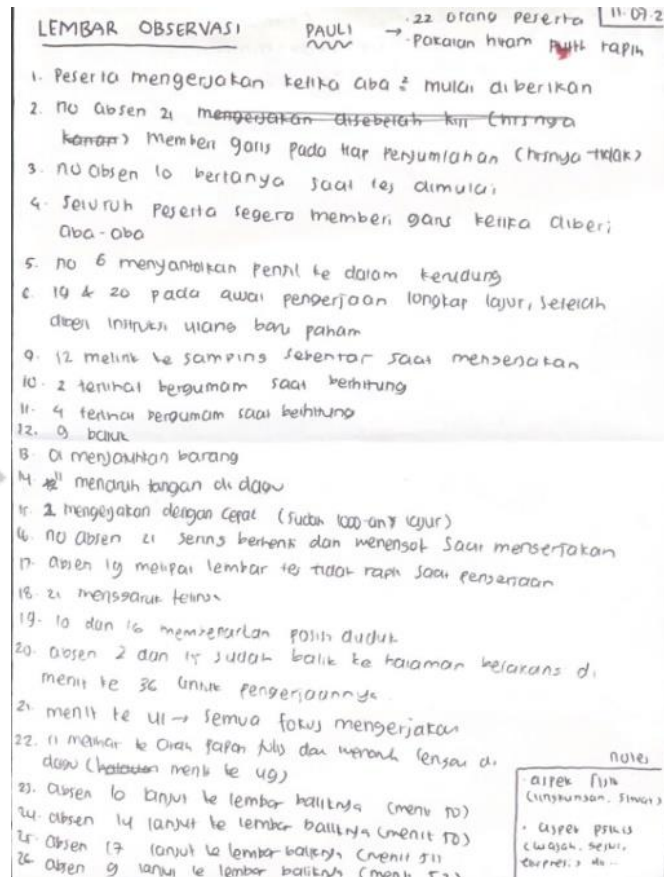 LEMBAR OBSERVASI PAULI → · 22 orang peserta 11·09·2
- Pakaian hitam putih rapih
1. Peserta mengerjakan ketika aba² mulai diberikan
2. no absen 21 mengerjakan disebelah kiri (hrsnya
kanan) memberi garis pada tiap penjumlahan (hrsnya tidak)
3. no absen 10 bertanya saat tes dimulai
4. Seluruh peserta segera memberi garis ketika diberi
aba-aba
5. no 6 menyantolkan pensil ke dalam kerudung
6. 19 & 20 pada awal pengerjaan longkap lajur, setelah
diberi instruksi ulang baru paham
9. 12 melirik ke samping sebentar saat mengerjakan
10. 2 terlihat bergumam saat berhitung
11. 4 terlihat bergumam saat berhitung
12. 9 batuk
13. menjatuhkan barang
14. 11 menaruh tangan di dagu
15. 2 mengerjakan dengan cepat (sudah lajur)
16. no absen 21 sering berhenti dan menengok saat mengerjakan
17. absen 19 melipat lembar tes tidak rapih saat pengerjaan
18. 21 menggaruk
19. 10 dan 16 membenarkan posisi duduk
20. absen 2 dan 15 sudah balik ke halaman belakang di
menit ke 36 untuk pengerjaannya
21. menit ke 41 → semua fokus mengerjakan
22. 11 melihat ke arah papan tulis dan menaruh lengan di
dagu (menit ke 49)
23. absen 10 lanjut ke lembar baliknya (menit 50)
24. absen 14 lanjut ke lembar baliknya (menit 50)
25. absen 17 lanjut ke lembar baliknya (menit 51)
26. absen 9 lanjut ke lembar baliknya (menit
notes
- aspek fisik
(lingkungan,
· aspek psikis
(wajah,